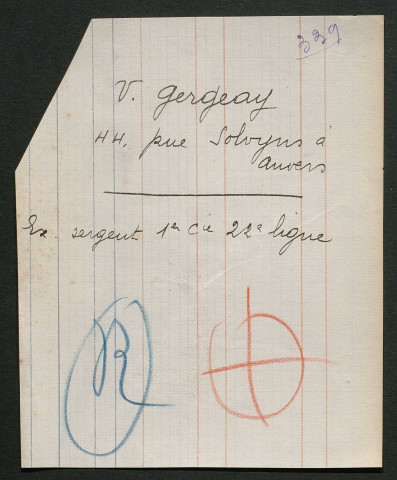 339
V. Gergeay
44, rue Solvyns à
Anvers
Ex. sergent 1re Cie 22e ligne
R